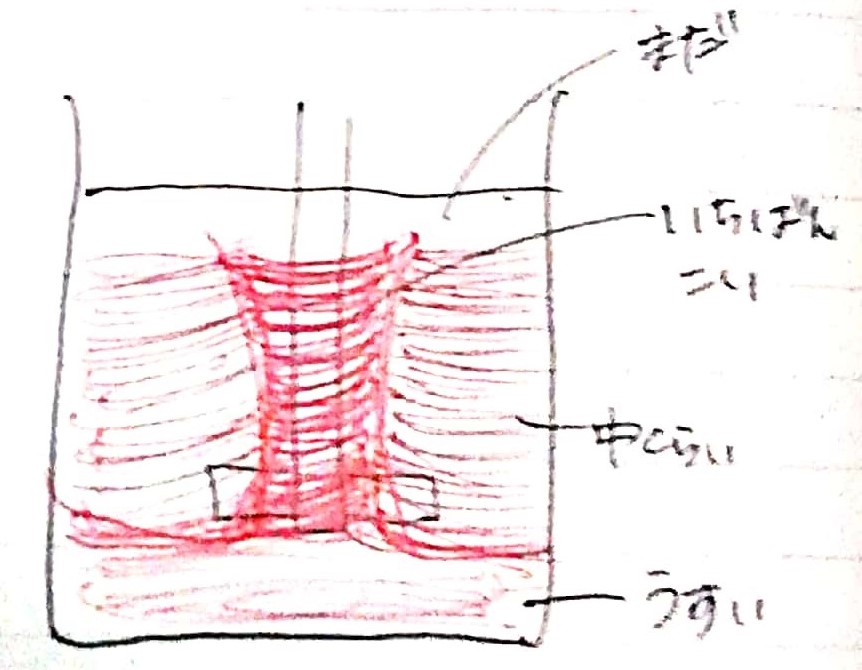 まだ
いちばん
こい
中くらい
うすい